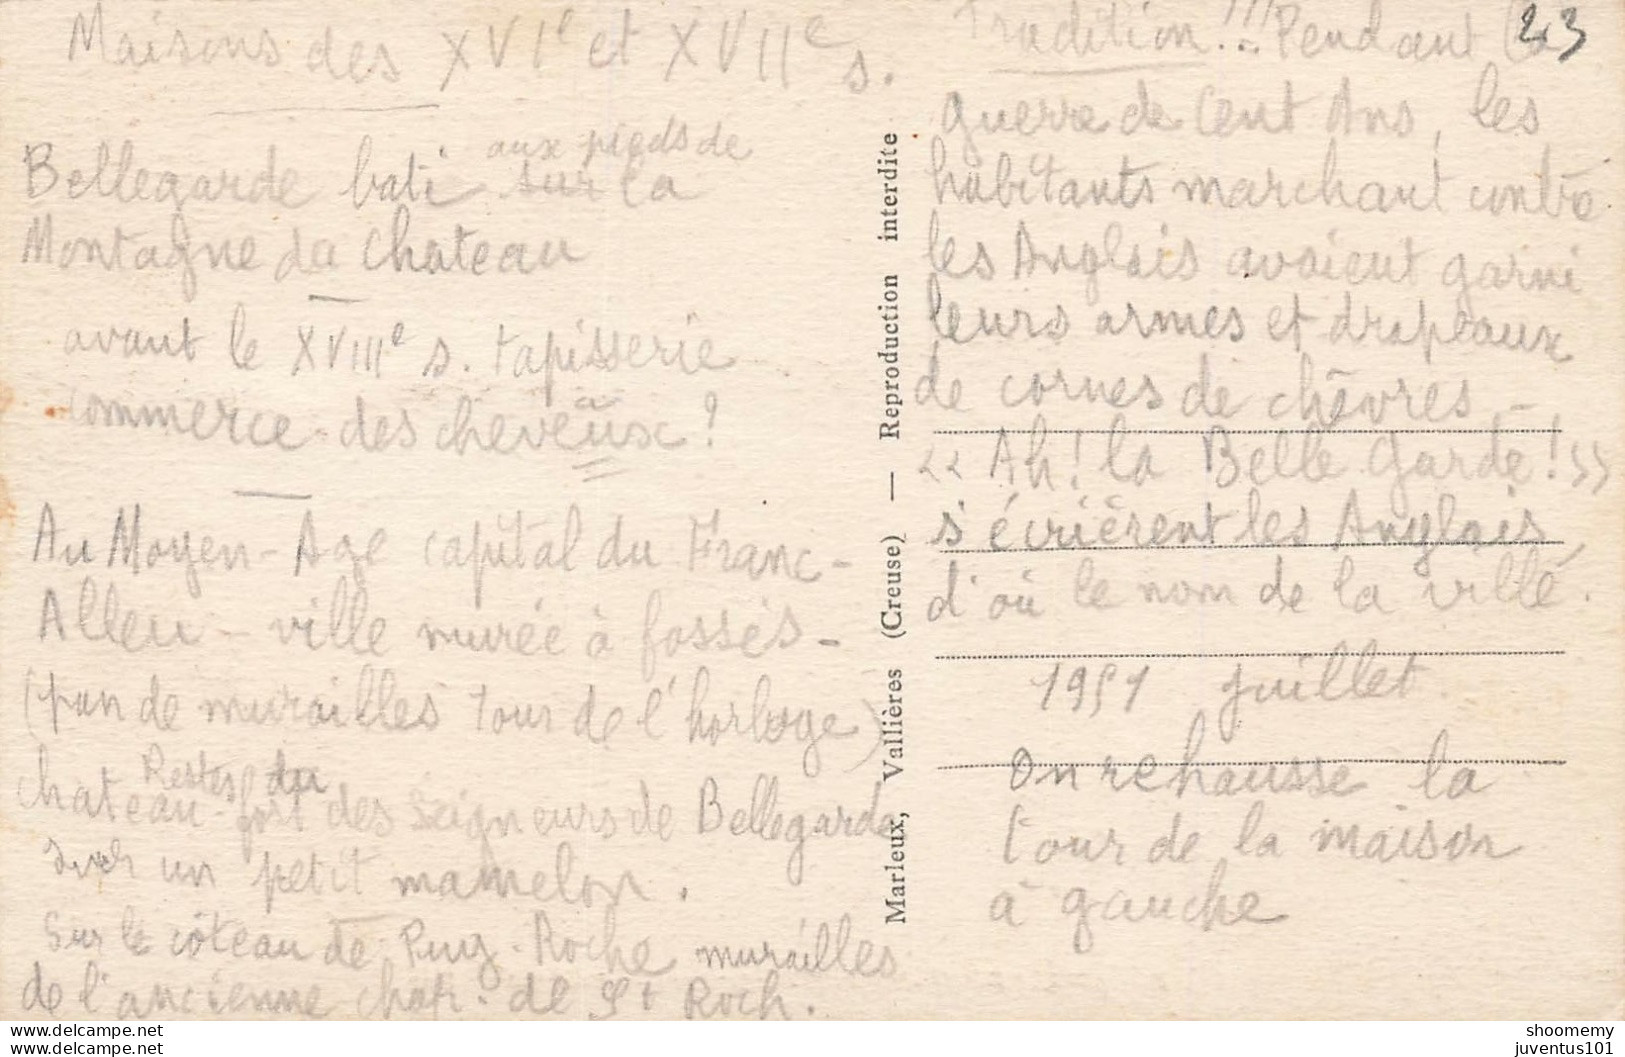 Maisons des XVIe et XVIIe s.
Bellegarde bati aux pieds de sur la
Montagne du Chateau
avant le XVIIIe s. tapisserie
commerce des cheveux ?
Au Moyen-Age capital du Franc-
Alleu - ville murée à fossés -
(pan de murailles tour de l'horloge)
Restes du
chateau-fort des Seigneurs de Bellegarde
sur un petit mamelon.
Sur le côteau de Puy-Roche murailles
de l'ancienne chap. de St Roch.
Marieux, Vallières (Creuse) — Reproduction interdite
23
Tradition !!! Pendant la
guerre de Cent Ans, les
habitants marchant contre
les Anglais avaient garni
leurs armes et drapeaux
de cornes de chèvres -
<< Ah ! la Belle Garde ! >>
s'écrièrent les Anglais
d'où le nom de la ville.
1951 juillet
On rehausse la
tour de la maison
à gauche
delcampe.net
by delcampe.com
shoomemy
juventus101